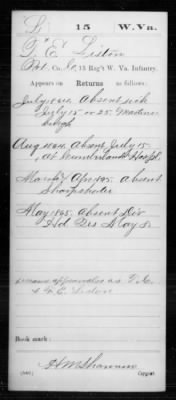 L 15 W. Va.
T. E. Liston
Pvt., Co. , 15 Reg't W. Va. Infantry.
Appears on Returns as follows:
July 1864. Absent sick
July 15 or 25.
Aug 1864. Absent July 15,
at Cumberland Hosp'l.
Mar & Apr 1865. absent
Sharpshooter
May 1865. Absent Div
Hd Qrs May 8
name appears also as T.
& E. Liston
Book mark:
(546) Copyist.